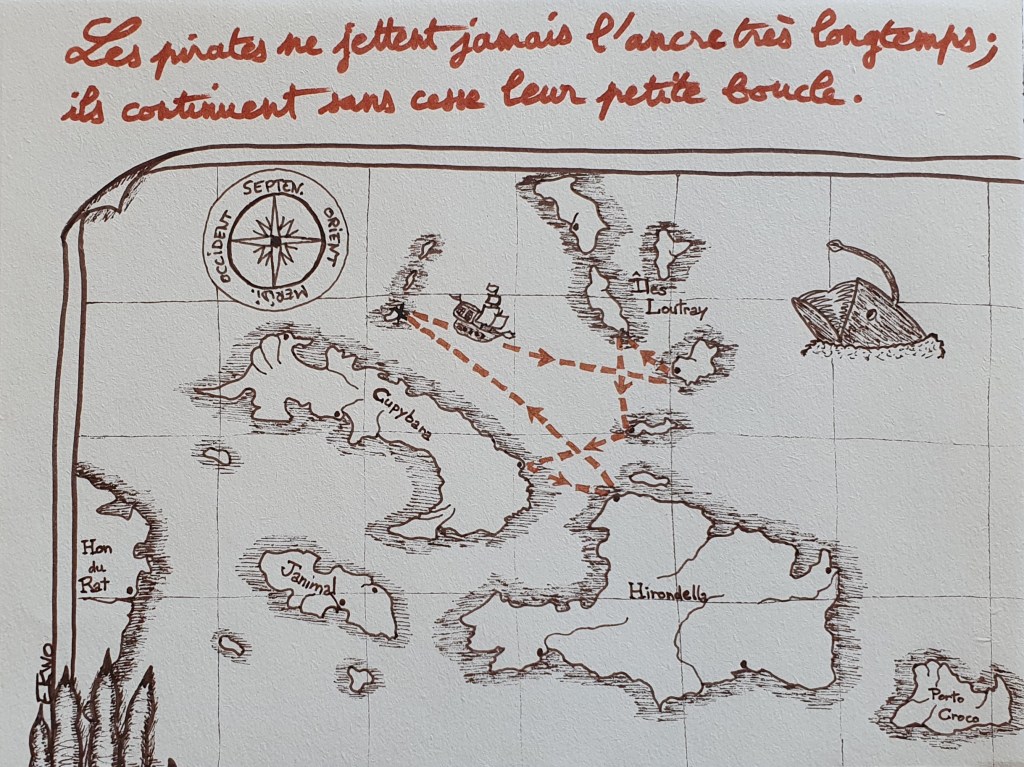 Les pirates ne jettent jamais l'ancre très longtemps;
ils continuent sans cesse leur petite boucle.
SEPTEN.
ORIENT
OCCIDENT
MERIDI.
Îles
Loutray
Gupybana
Hon
du
Rat
Janimal
Hirondella
Porto
Croco